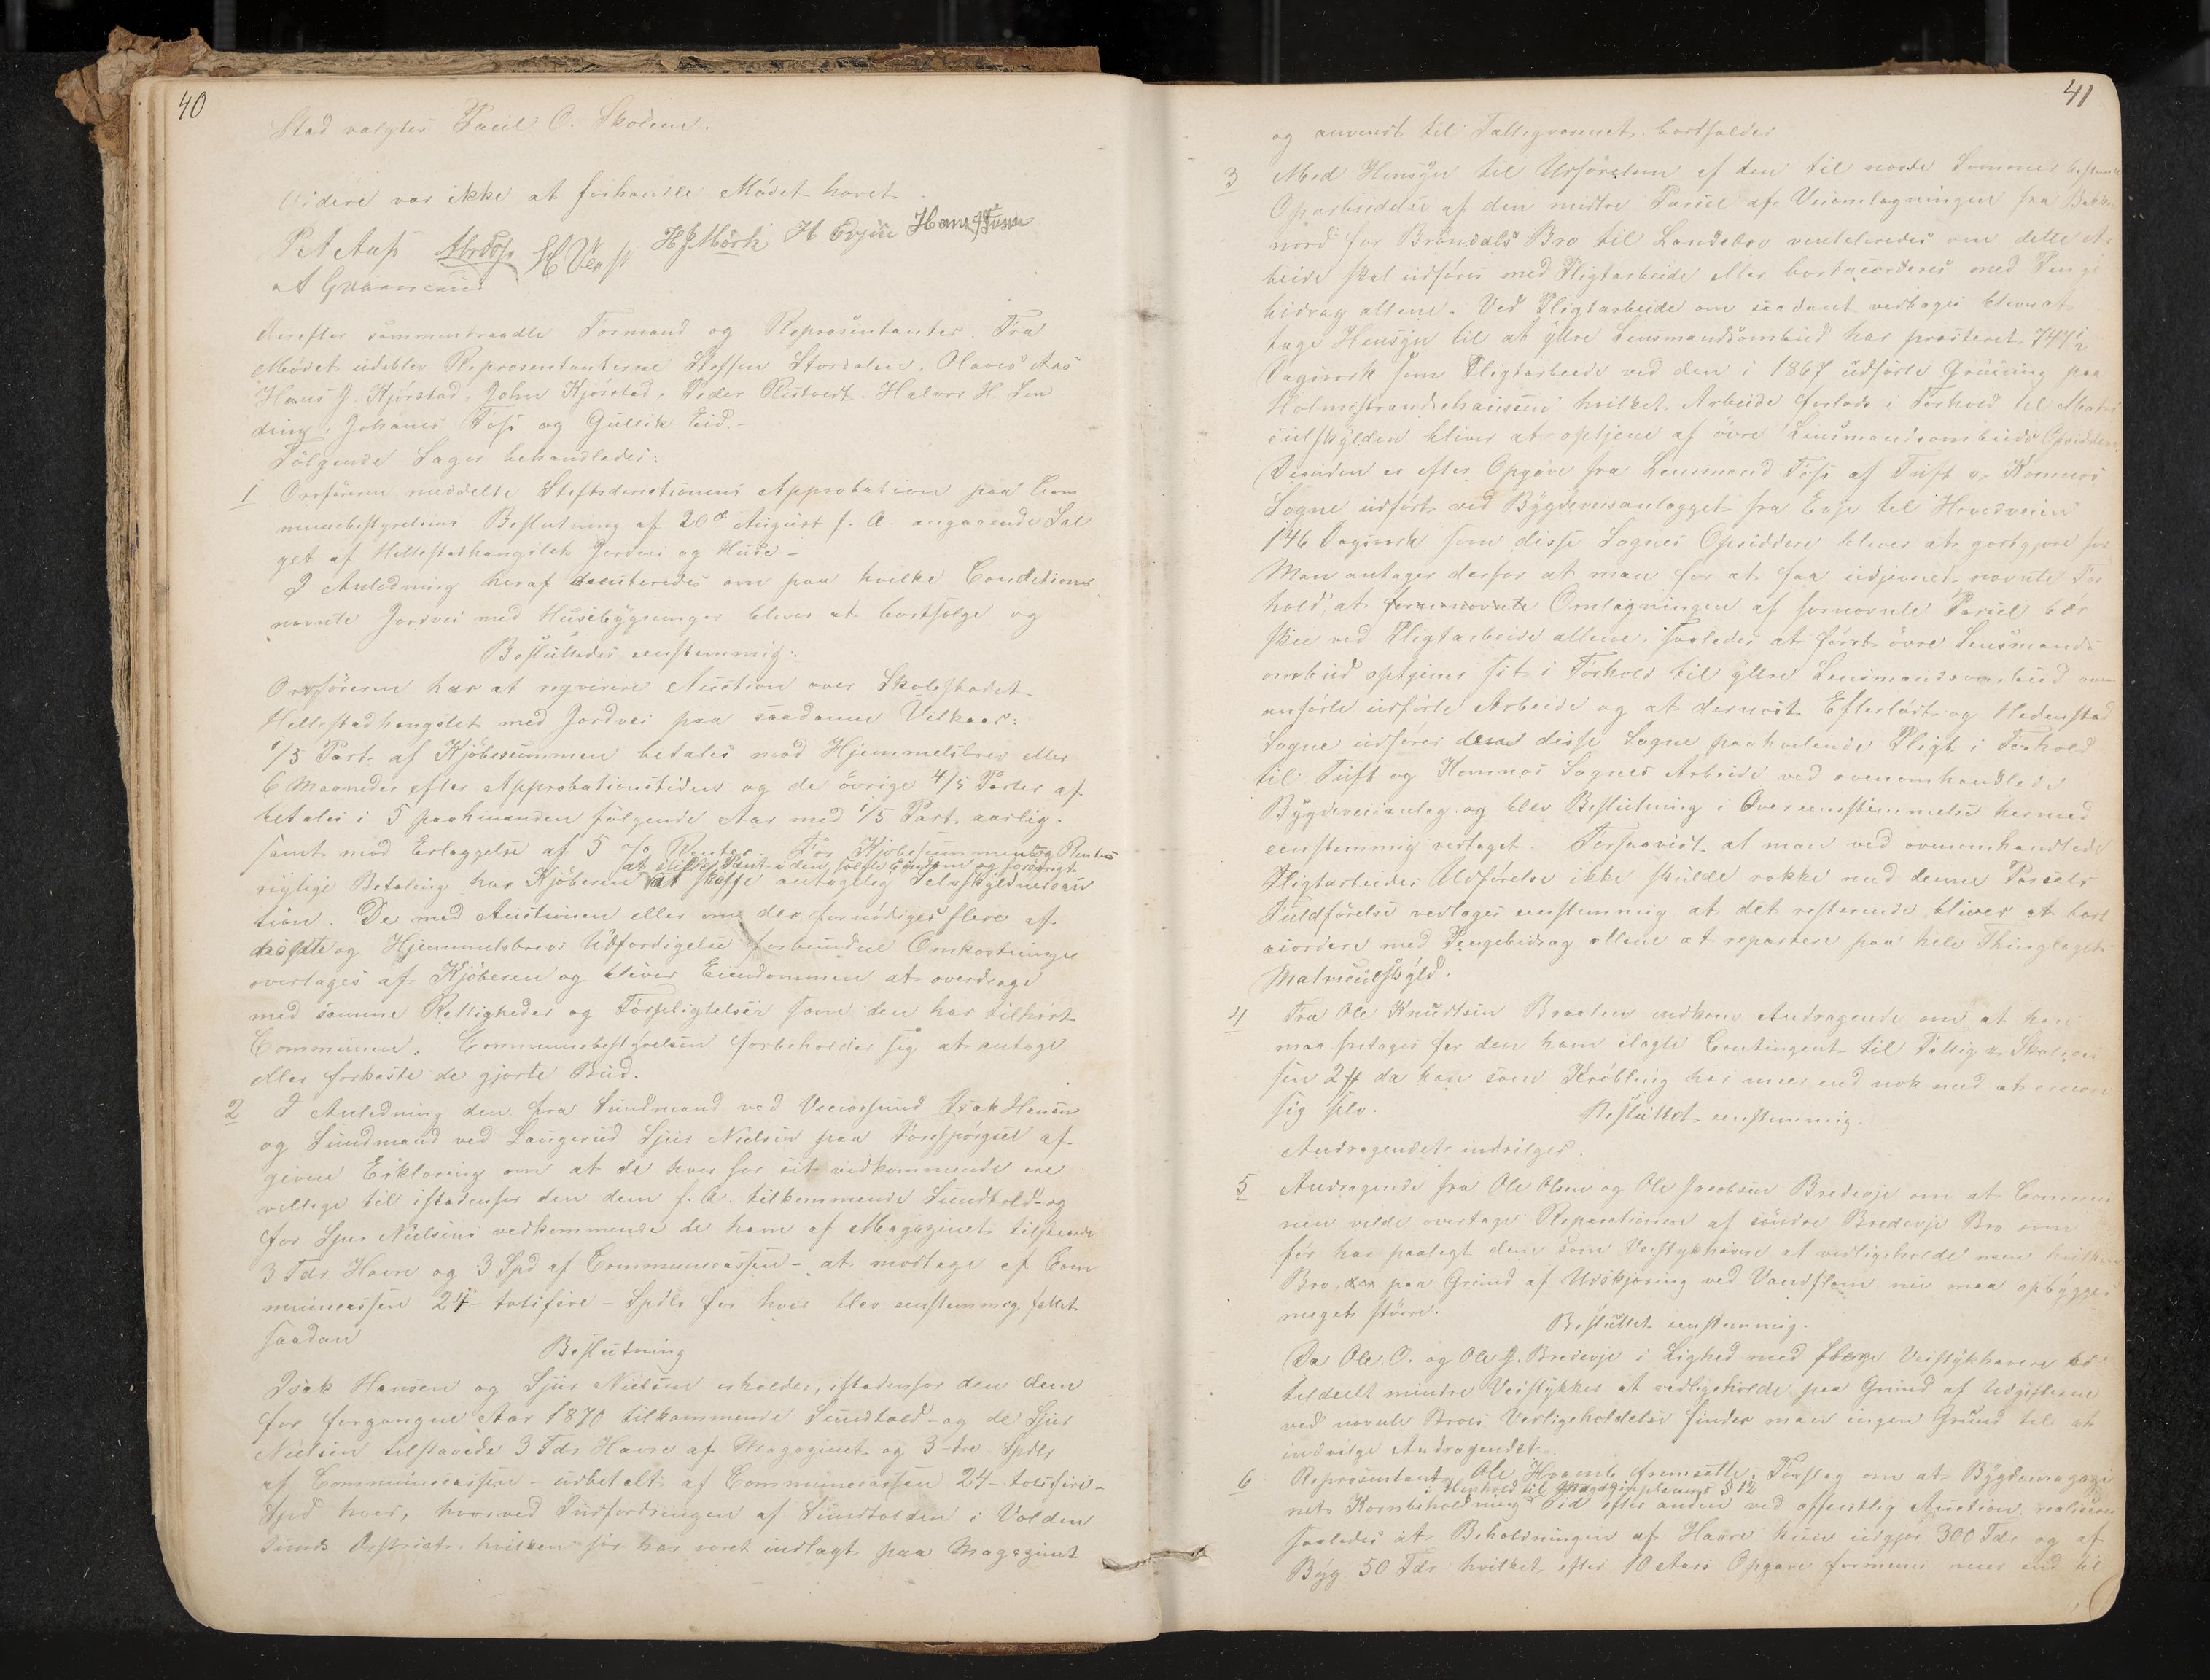 40
Stad valgtes Paul O. Skolem.
Videre var ikke at forhandle Mødet hævet
P A Aas H J Mörch Hans J Foss
Derefter sammentraadte Formænd og Repræsentanter. Fra
Mødet udeblev Repræsentanterne Steffen Stordalen, Olaves Aas
Hans J. Kjørstad, John Kjørstad, Peder Ristvedt. Halvor H. Im
ding, Johanes Foss og Gullik Eid.
Følgende Sager behandledes:
1 Ordføreren meddelte Stiftsdirectionens Approbation paa Com
munebestyrelsens Beslutning af 20de August f. A. angaaende Sal
get af Hellestadhengslet Jordvei og Huse –
I Anledning heraf discuteredes om paa hvilke Conditioner
nævnte Jordvei med Husebygninger bliver at bortsælge og
Besluttedes eenstemmig:
Ordføreren har at reqvirere Auction over Skolestedet
Hellestadhengslet med Jordvei paa saadanne Vilkaar:
1/5 Part af Kjøbesummen betales mod Hjemmelsbrev eller
6 Maaneder efter Approbationstiden og de øvrige 4/5 Parter af
betales i 5 paahinanden følgende Aar med 1/5 Part aarlig.
samt mod Erlæggelse af 5 % Renter. For Kjøbesummens og Renters
at stille Pant i den solgte Eiendom og forøvrigt
rigtige Betaling har Kjøberen at skaffe antagelig Selvskyldnercau
tion. De med Auctionen eller om der fornødiges flere af
disse og Hjemmelsbrevs Udfærdigelse forbundne Omkostninger
overtages af Kjøberen og bliver Eiendommen at overdrage
med samme Rettigheder og Forpligtelser som den har tilhørt
Communen. Communebestyrelsen forbeholder sig at antage
eller forkaste de gjorte Bud.
2 I Anledning den fra Sundmand ved Isak Hansen
og Sundmand ved Langerud Sjur Nielsen paa Forespørgsel af
givne Erklæring om at de hver for sit vedkommende ere
villige til istedenfor den dem f. A. tilkommende Sundtold og
for Sjur Nielsens vedkommende de ham af Magazinet tilstaaede
3 Tdr Havre og 3 Spd af Communecassen – at modtage af Com
munecassen 24 – totifire – Spdlr for hver blev eenstemmig fattet
saadan
Beslutning
Isak Hansen og Sjur Nielsen erholder, istedenfor den dem
for forgangne Aar 1870 tilkommende Sundtold og de Sjur
Nielsen tilstaaede 3 Tdr Havre af Magazinet og 3 – tre – Spdlr
af Communecassen – udbetalt af Communecassen 24 – totifire –
Spd hver, hvorved Indfordringen af Sundtolden i Volden
sunds District, hvilken før har været indlagt paa Magazinet
41
og anvendt til Fattigvæsenet bortfalder
3 Med Hensyn til Udførelsen af den til næste Sommer bestemte
Oparbeidelse af den midtre Parcel af Veiomlægningen fra Bakke
nord for Brøndals Bro til Landsbro ventileredes om dette Ar
beide skal udføres med Pligtarbeide eller bortaccorderes med Penge
bidrag allene. Ved Pligtarbeide om saadant vedtages bliver at
tage Hensyn til at ytre Lensmandsombud har præsteret 747½
Dagsverk som Pligtarbeide ved den i 1867 udførte Grusning paa
Holmestrandschauseen hvilket Arbeide fordeelt i Forhold til Matri
culskylden bliver at optjene af øvre Lensmandsombuds Opsiddere
Desuden er efter Opgave fra Lensmand Foss af Tuft og Komnæs
Sogne udført ved Bygdeveisanlægget fra Evje til Hovedveien
146 Dagsverk som disse Sognes Opsiddere bliver at godtgjøre for
Man antager derfor at man for at faa udjevnet nævnte For
hold, at Omlægningen af fornævnte Parcel bør
skee ved Pligtarbeide allene, saaledes at først øvre Lensmands
ombud optjener sit i Forhold til ytre Lensmandsombud oven
anførte udførte Arbeide og at dernæst Efterlødt og Hedenstad
Sogne udfører disse Sogne paahvilende Pligt i Forhold
til Tuft og Komnæs Sognes Arbeide ved ovenomhandlede
Bygdeveianlæg og blev Beslutning i Overeensstemmelse hermed
eenstemmig vedtaget. Forsaavidt at man ved ovenomhandlede
Pligtarbeides Udførelse ikke skulde række med denne Parcels
Fuldførelse vedtages eenstemmig at det resterende bliver at bort
accordere med Pengebidrag allene at repartere paa hele Thinglagets
Matriculskyld.
4 Fra Ole Knudtsen Braaten indkom Andragende om at han
maa fritages for den ham ilagte Contingent til Fattig og Skolecas
sen da han som Krøbling har meer end nok med at ernære
sig selv. Besluttet eenstemmig
Andragendet indvilges.
5 Andragende fra Ole Olsen og Ole Jacobsen Bredevje om at Commu
nen vilde overtage Reparationen af søndre Bredevje Bro som
før har paalagt dem som Veistykhavere at vedligeholde men hvilken
Bro paa Grund af Udskjæring ved Vandflom nu maa opbygges
meget større.
Besluttet eenstemmig.
Da Ole O. og Ole J. Bredevje i Lighed med flere Veistykhavere
tildeelt mindre Veistykker at vedligeholde paa Grund af Udgifterne
ved nævnte Broes Vedligeholdelse finder man ingen Grund til at
indvilge Andragendet.
6 Repræsentant Ole Hvamb fremsatte Forslag om at Bygdemagazi
i Henhold til Magazinplanens § 12
nets Kornbeholdning Tid efter anden ved offentlig Auction realiseres
saaledes at Beholdningen af Havre kun udgjør 300 Tdr og af
Byg 50 Tdr hvilket efter 10 Aars Opgave formenes meer end til